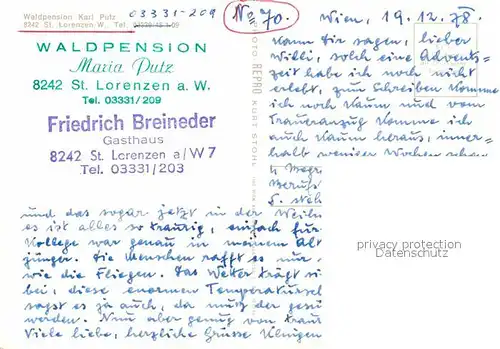 Waldpension Karl Putz
8242 St. Lorenzen a. W., Tel.
03331-209
No 70.
WALDPENSION
Maria Putz
8242 St. Lorenzen a. W.
Tel. 03331/209
Friedrich Breineder
Gasthaus
8242 St. Lorenzen a/W 7
Tel. 03331/203
PHOTO REPRO KURT STOHL
Wien, 19.12.78.
Kann Dir sagen, lieber
Willi, solch eine Advents-
zeit habe ich noch nicht
erlebt, zum Schreiben komme
ich noch kaum und vom
Traueranzug komme ich
auch kaum heraus, inner-
halb weniger Wochen schon
4 Begr
Berufs
s. Neh
und das sogar jetzt in der Weihn
es ist alles so traurig, einfach für
Kollege war genau in meinem Alt
jünger. Die Menschen rafft es nur
wie die Fliegen. Das Wetter trägt si
bei, diese enormen Temperaturschl
sagst es ja auch, da muß der gesu
werden. Nun aber genug von trau
Viele liebe, herzliche Grüsse
privacy protection
Datenschutz